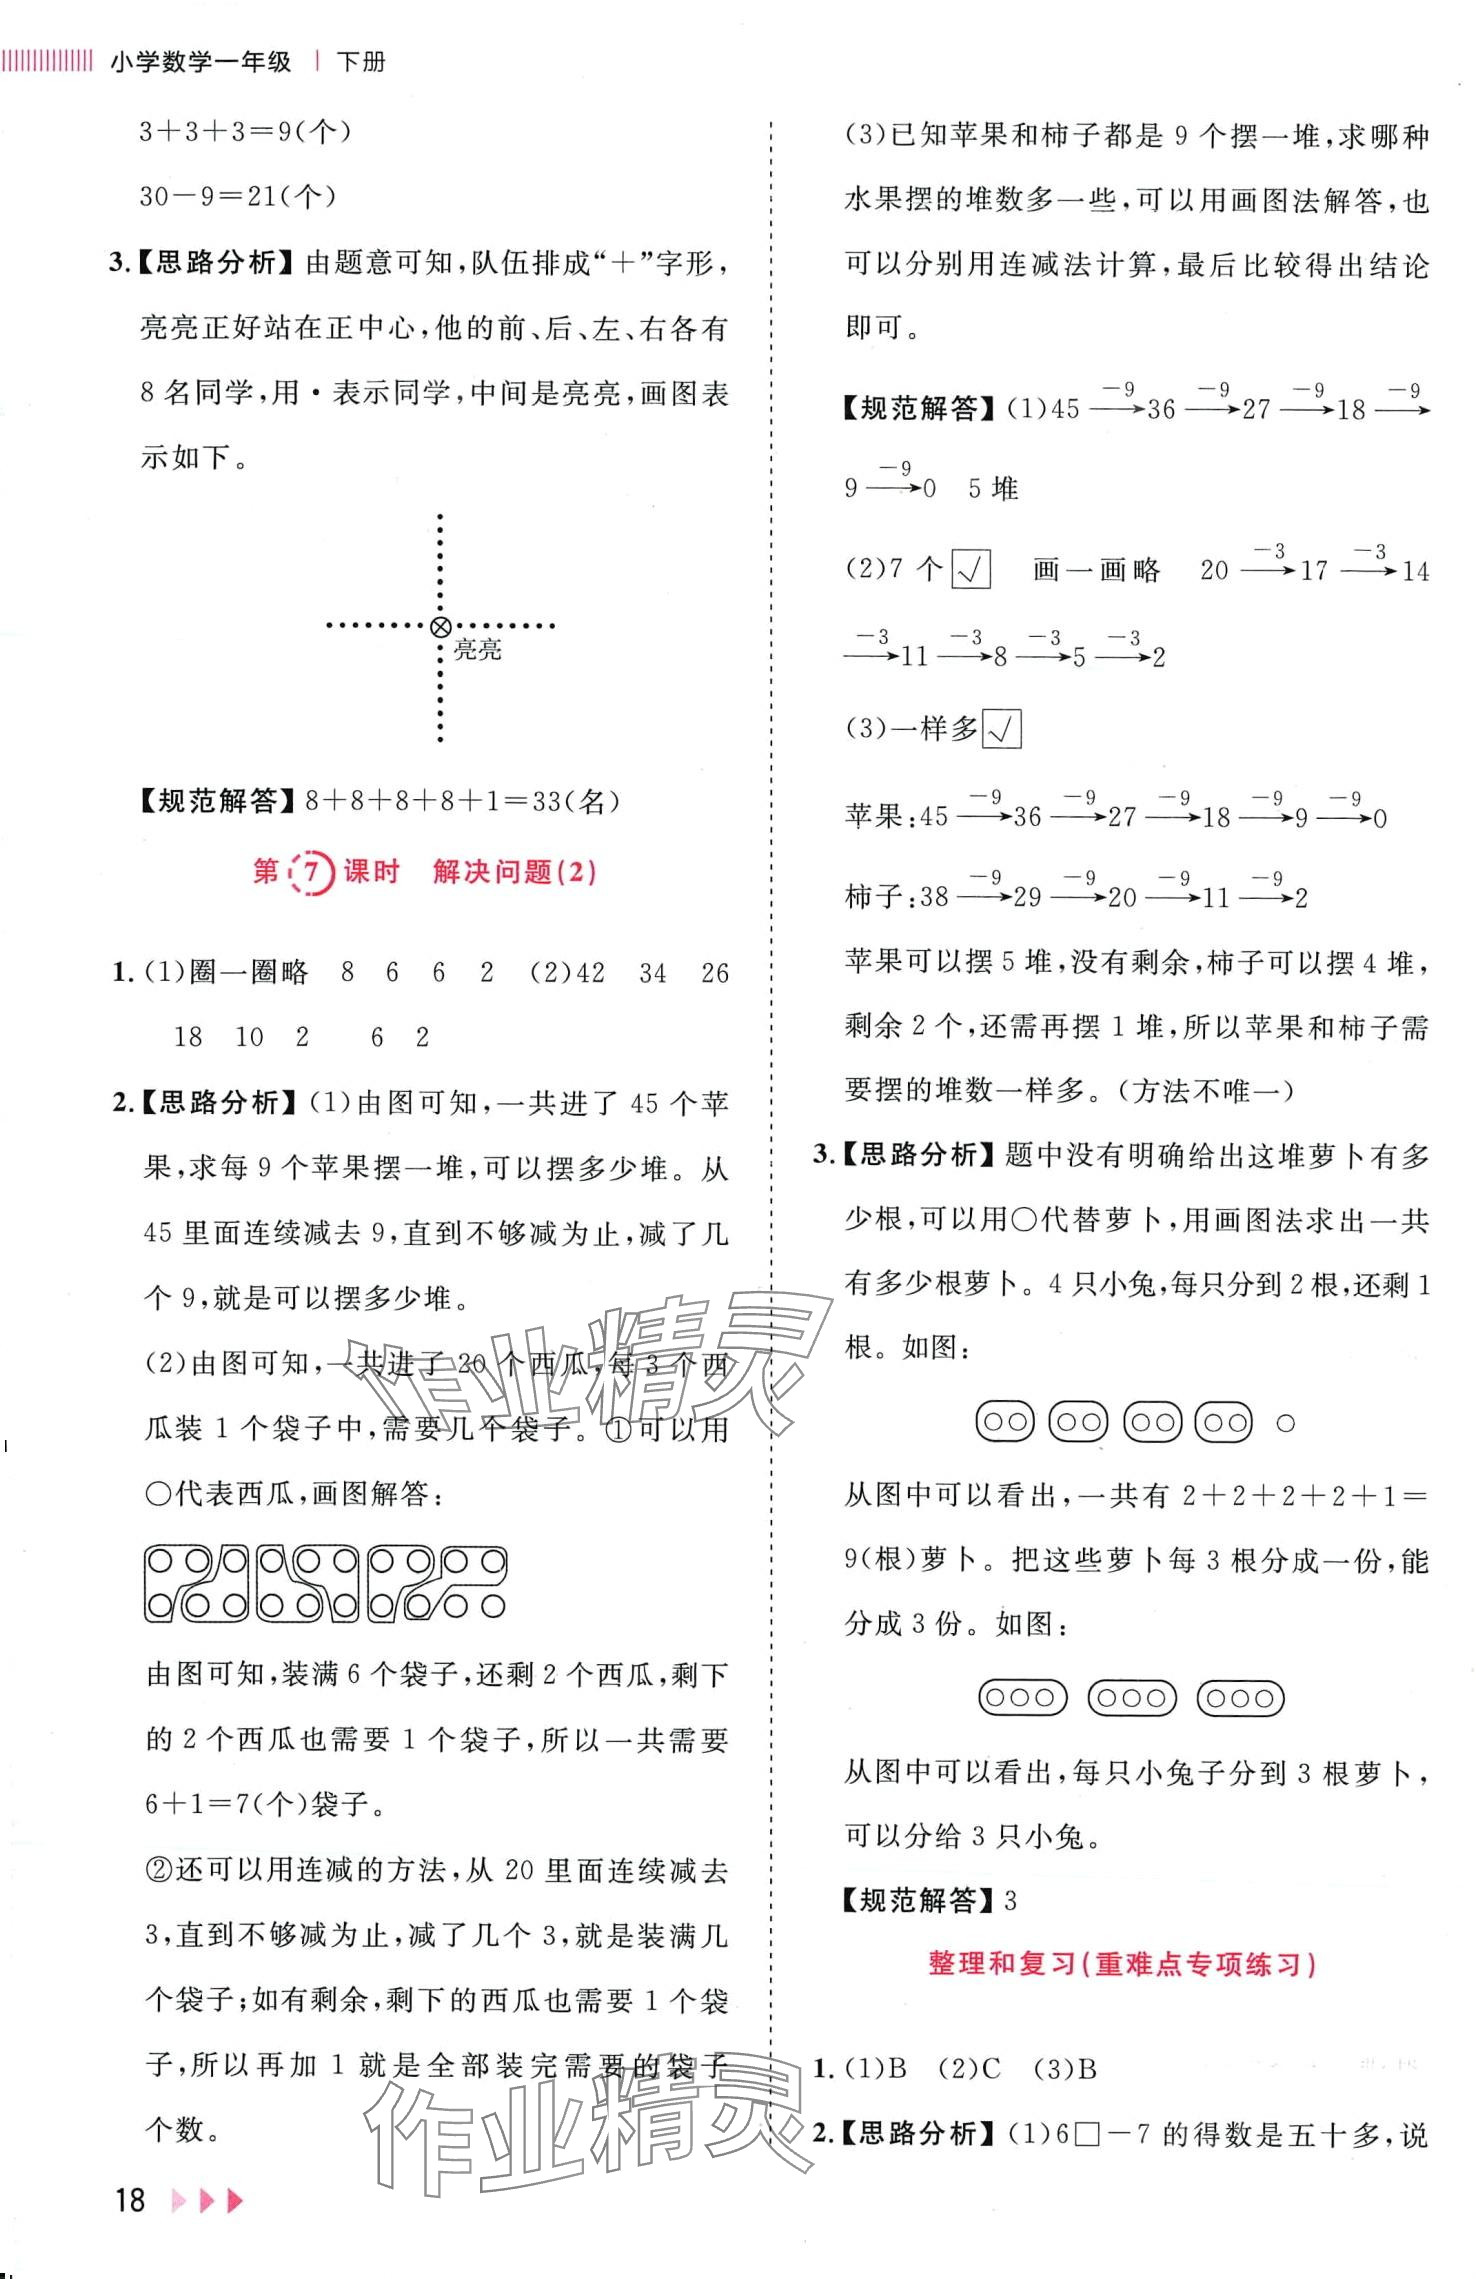 小学数学一年级 | 下册
3+3+3=9(个)
30-9=21(个)
3.【思路分析】由题意可知,队伍排成“+”字形,
亮亮正好站在正中心,他的前、后、左、右各有
8名同学,用·表示同学,中间是亮亮,画图表
示如下。
亮亮
【规范解答】8+8+8+8+1=33(名)
第7课时 解决问题(2)
1.(1)圈一圈略 8 6 6 2 (2)42 34 26
18 10 2 6 2
2.【思路分析】(1)由图可知,一共进了45个苹
果,求每9个苹果摆一堆,可以摆多少堆。从
45里面连续减去9,直到不够减为止,减了几
个9,就是可以摆多少堆。
(2)由图可知,一共进了20个西瓜,每3个西
瓜装1个袋子中,需要几个袋子。①可以用
○代表西瓜,画图解答:
由图可知,装满6个袋子,还剩2个西瓜,剩下
的2个西瓜也需要1个袋子,所以一共需要
6+1=7(个)袋子。
②还可以用连减的方法,从20里面连续减去
3,直到不够减为止,减了几个3,就是装满几
个袋子;如有剩余,剩下的西瓜也需要1个袋
子,所以再加1就是全部装完需要的袋子
个数。
18
(3)已知苹果和柿子都是9个摆一堆,求哪种
水果摆的堆数多一些,可以用画图法解答,也
可以分别用连减法计算,最后比较得出结论
即可。
【规范解答】(1)45 -9→ 36 -9→ 27 -9→ 18 -9→
9 -9→ 0 5堆
(2)7个☑ 画一画略 20 -3→ 17 -3→ 14
-3→ 11 -3→ 8 -3→ 5 -3→ 2
(3)一样多☑
苹果:45 -9→ 36 -9→ 27 -9→ 18 -9→ 9 -9→ 0
柿子:38 -9→ 29 -9→ 20 -9→ 11 -9→ 2
苹果可以摆5堆,没有剩余,柿子可以摆4堆,
剩余2个,还需再摆1堆,所以苹果和柿子需
要摆的堆数一样多。(方法不唯一)
3.【思路分析】题中没有明确给出这堆萝卜有多
少根,可以用○代替萝卜,用画图法求出一共
有多少根萝卜。4只小兔,每只分到2根,还剩1
根。如图:
从图中可以看出,一共有2+2+2+2+1=
9(根)萝卜。把这些萝卜每3根分成一份,能
分成3份。如图:
从图中可以看出,每只小兔子分到3根萝卜,
可以分给3只小兔。
【规范解答】3
整理和复习(重难点专项练习)
1.(1)B (2)C (3)B
2.【思路分析】(1)6□-7的得数是五十多,说
作业精灵
作业精灵